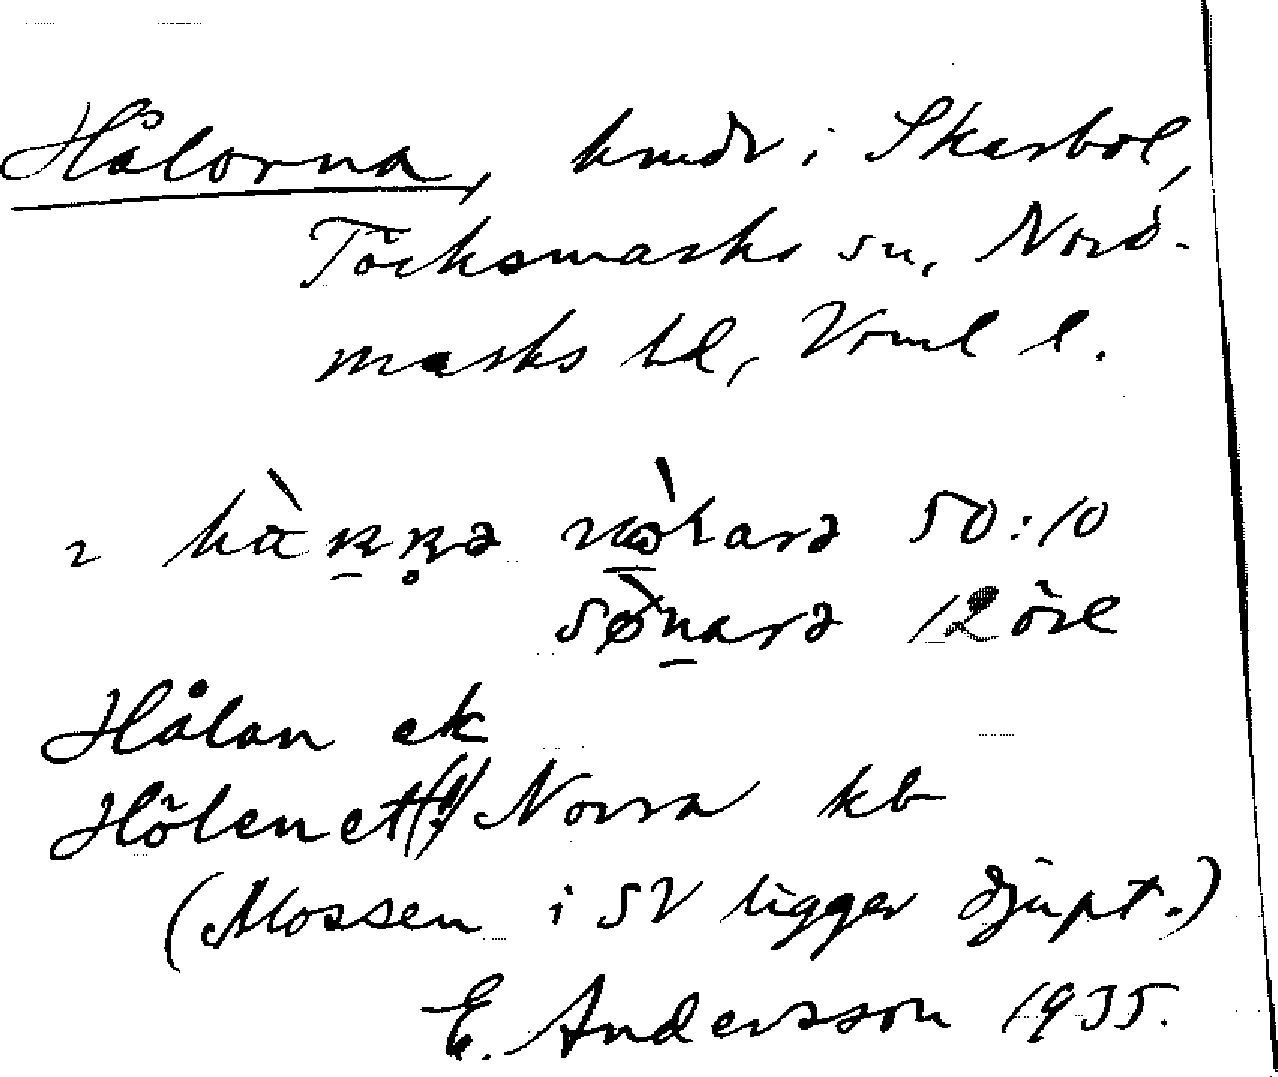 Hålorna, hmdr i Skarbol,
Töcksmarks sn, Nord-
marks hd, Vrml l.
50:10
12 öre
Hålan ek
Hölen et(!) Norra kb
(Mossen i SV ligger djupt.)
E. Andersson 1935.